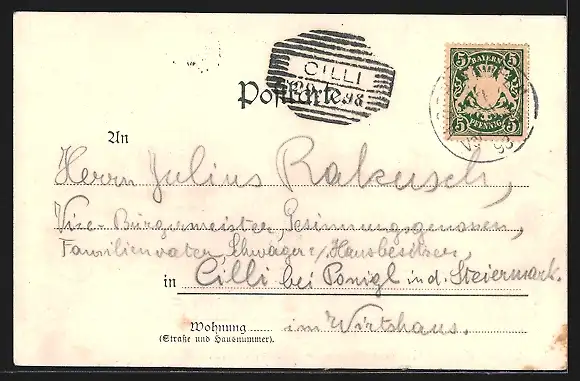 CILLI
98
Postkarte
5 BAYERN 5
5 PFENNIG 5
An
Herrn Julius Rakusch,
Vice-Bürgermeister, Gesinnungsgenossen,
Familienvater, Schwager, Hausbesitzer,
in Cilli bei Ponigl in d. Steiermark.
Wohnung im Wirtshaus.
(Straße und Hausnummer).